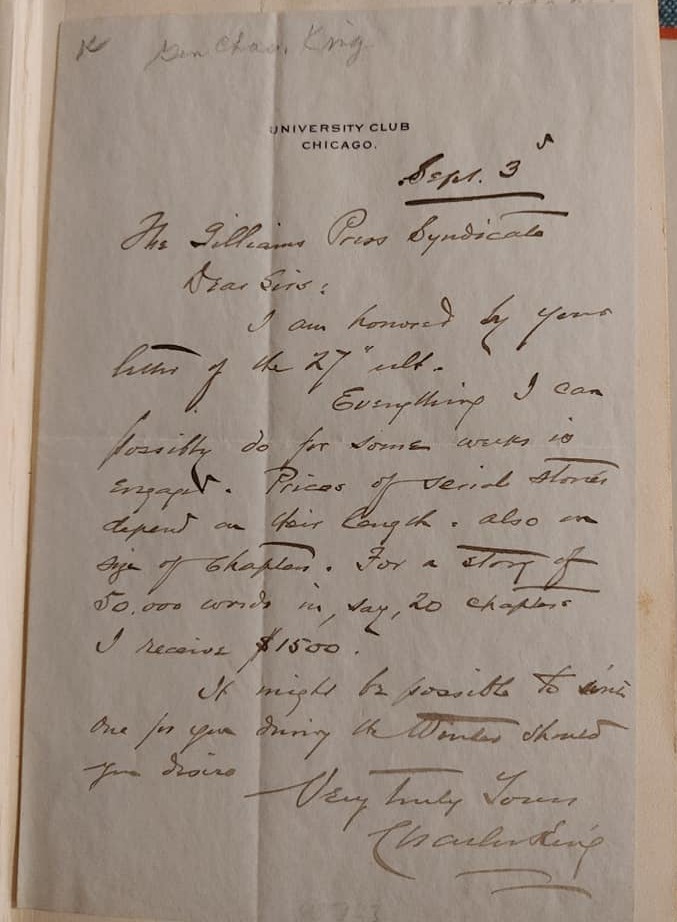 K Gen Chas. King
UNIVERSITY CLUB
CHICAGO.
Sept. 3
The Gilliams Press Syndicate
Dear Sirs:
I am honored by your
letter of the 27" ult.
Everything I can
possibly do for some weeks is
engaged. Prices of serial stories
depend on their length. also on
size of Chapters. For a story of
50,000 words in, say, 20 chapters
I receive $1500.
It might be possible to write
one for you during the Winter should
you desire
Very truly Yours
Charles King